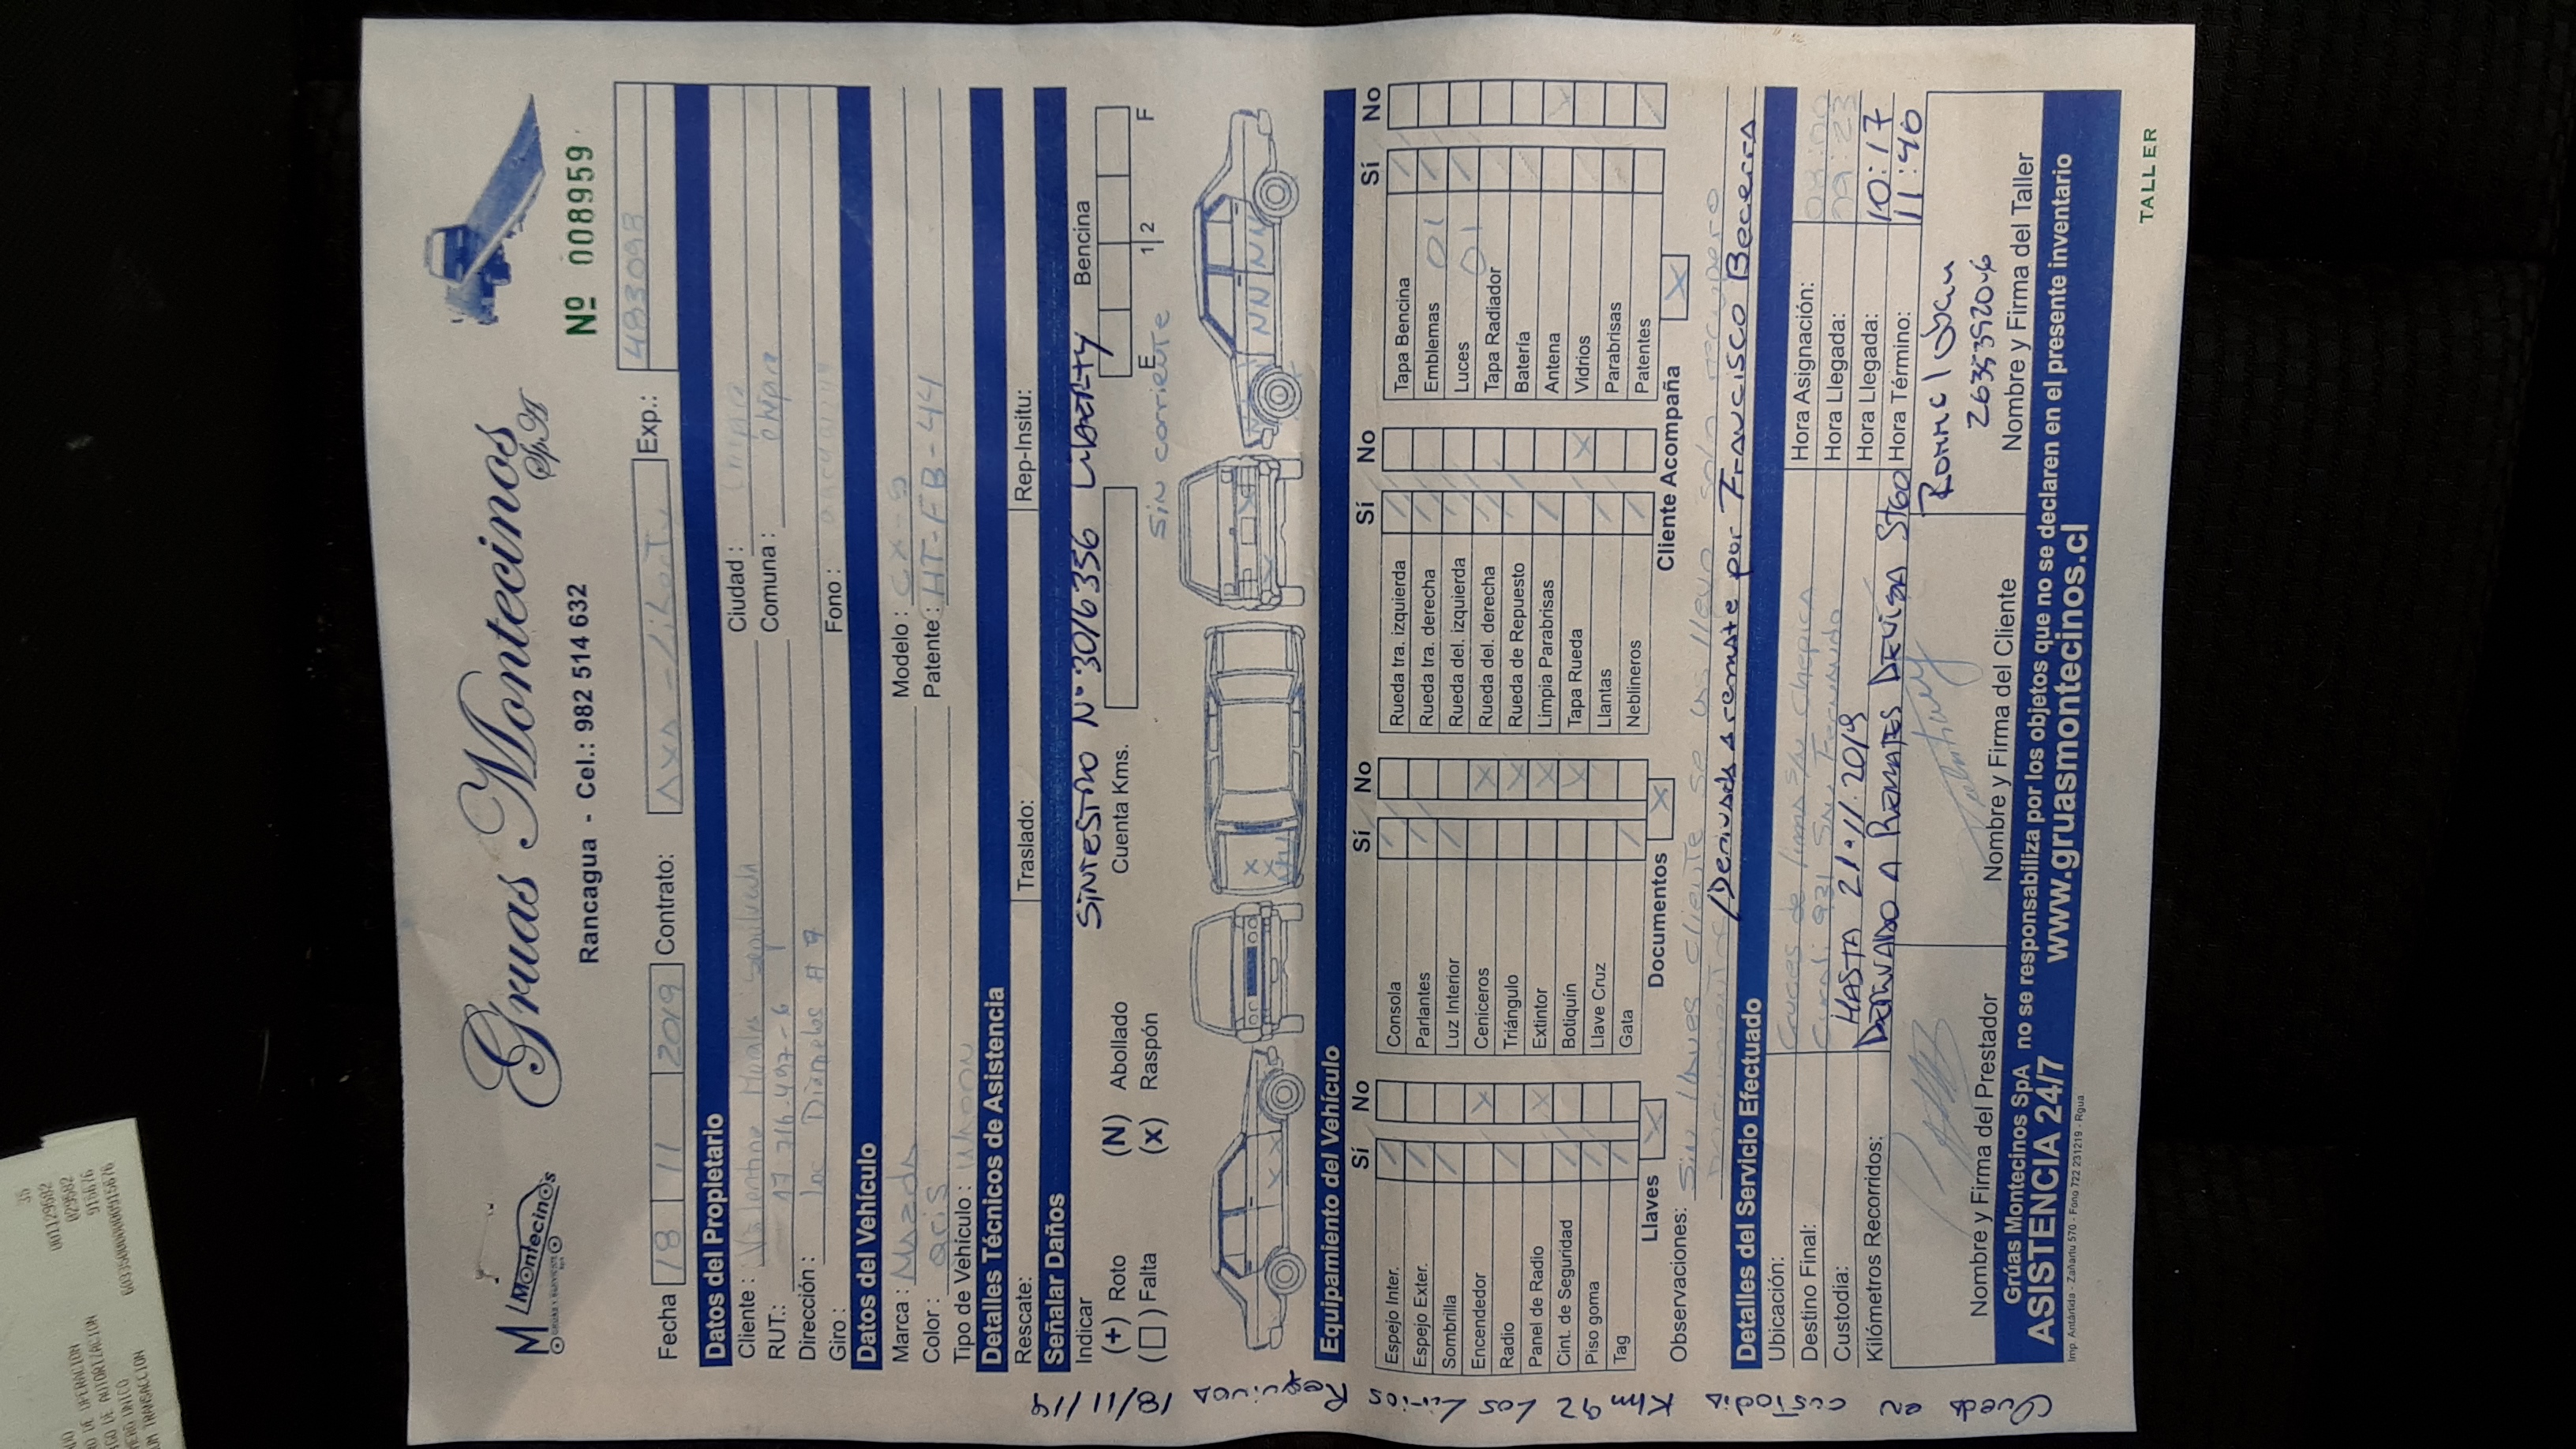 Montecinos
GRUAS Y TRANSPORTES
SPA
Gruas Montecinos
Sp.A
Rancagua - Cel.: 982 514 632
Nº 0008959
Fecha 18 11 2019 Contrato: Axa - Liberty Exp.: 4883098
Datos del Propietario
Cliente: Valentina Morales Sepulveda Ciudad:
RUT.: 17.716.497-6 Comuna: chipica
Dirección: Los Diamelos # 9
Giro: Fono:
Datos del Vehículo
Marca: Mazda Modelo: CX-5
Color: Gris Patente: HT-FB-44
Tipo de Vehículo:
Detalles Técnicos de Asistencia
Rescate: Traslado: Rep-Insitu:
Señalar Daños
Indicar SINIESTRO Nº 3016356 Liberty
(+) Roto (N) Abollado Cuenta Kms. Bencina
(□) Falta (x) Raspón E 1|2 F
Sin corriente
X X X X NN NN NN
Equipamiento del Vehículo
Sí No Sí No Sí No Sí No
Espejo Inter. Consola Rueda tra. izquierda Tapa Bencina
Espejo Exter. Parlantes Rueda tra. derecha Emblemas 01
Sombrilla Luz Interior Rueda del. izquierda Luces
Encendedor X Ceniceros X Rueda del. derecha Tapa Radiador 01
Radio Triángulo X Rueda de Repuesto Batería
Panel de Radio X Extintor X Limpia Parabrisas Antena X
Cint. de Seguridad Botiquín X Tapa Rueda X Vidrios
Piso goma Llave Cruz Llantas Parabrisas
Tag Gata Neblineros Patentes
Llaves X Documentos X Cliente Acompaña X
Observaciones: Sin llaves cliente se las llevo solo
/Derivada a remate por Francisco Becerra
Detalles del Servicio Efectuado
Ubicación: Cruces de Chepica Hora Asignación:
Destino Final: 931 San Fernando Hora Llegada: 09:23
Custodia: HASTA 21.11.2019 Hora Llegada: 10:17
Kilómetros Recorridos: DERIVADO A REMATES STGO Hora Término: 11:40
26353920-6
Nombre y Firma del Prestador Nombre y Firma del Cliente Nombre y Firma del Taller
Grúas Montecinos SpA no se responsabiliza por los objetos que no se declaren en el presente inventario
ASISTENCIA 24/7 www.gruasmontecinos.cl
Imp. Antártida - Zañartu 570 - Fono 722 231219 - Rgua.
TALLER
Queda en custodia Klm 92 Los Lirios Requinoa 18/11/19
35
001129682
029682
915676
DE OPERACION
DE AUTORIZACION
UNICO
TRANSACCION